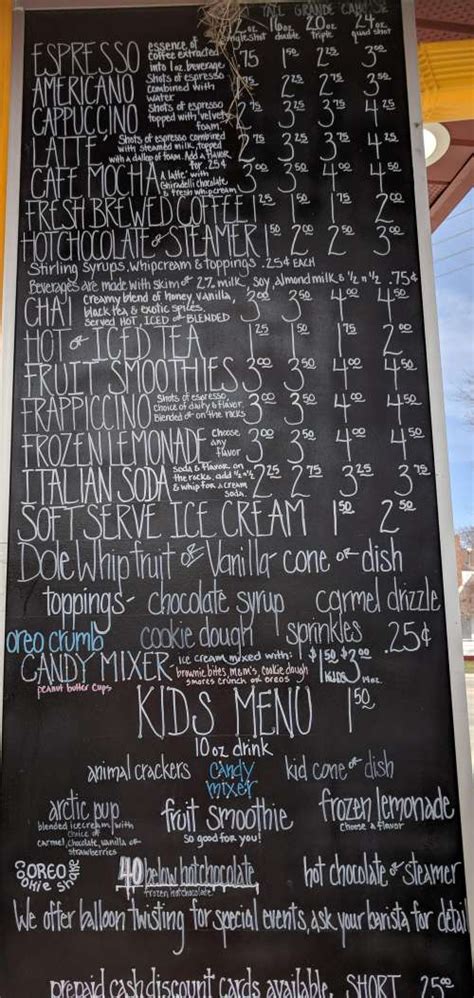 TALL GRANDE
16oz 20oz 24oz
single shot double triple quad shot
ESPRESSO essence of coffee extracted into 1oz. beverage .75 1.50 2.25
AMERICANO Shots of espresso combined with water 2.25 2.75 3.50
CAPPUCCINO Shots of espresso topped with velvet foam. 2.75 3.25 3.75 4.25
LATTE Shots of espresso combined with steamed milk, topped with a dallop of foam. Add a flavor for .25¢ 2.75 3.25 3.75 4.25
CAFE MOCHA A latte with Ghiradelli chocolate & fresh whip cream 3.00 3.50 4.00 4.50
FRESH BREWED COFFEE 1.25 1.50 1.75 2.00
HOT CHOCOLATE or STEAMER 1.50 2.00 2.50 3.00
Stirling Syrups, whipcream & toppings .25¢ EACH
Beverages are made with skim or 2% milk, soy, almond milk & ½ n ½ .75¢
CHAI creamy blend of honey, vanilla, black tea & exotic spices. Served HOT, ICED or BLENDED 3.00 3.50 4.00 4.50
HOT or ICED TEA 1.25 1.50 1.75 2.00
FRUIT SMOOTHIES 3.00 3.50 4.00 4.50
FRAPPICCINO Shots of espresso, choice of dairy & flavor. Blended or on the rocks 3.00 3.50 4.00 4.50
FROZEN LEMONADE Choose any flavor 3.00 3.50 4.00 4.50
ITALIAN SODA Soda & flavor on the rocks, add ½ n ½ & whip for a cream soda. 2.25 2.75 3.25 3.75
SOFT SERVE ICE CREAM 1.50 2.50
Dole Whip fruit or Vanilla - cone or dish
toppings - chocolate syrup carmel drizzle
oreo crumb cookie dough sprinkles .25¢
CANDY MIXER ice cream mixed with: brownie bites, m&m's, cookie dough
peanut butter cups smores crunch or oreos
KIDS MENU 1.50
10oz drink
animal crackers candy mixer kid cone or dish
arctic pup fruit smoothie frozen lemonade
blended ice cream with choice of carmel, chocolate, vanilla or strawberries
so good for you!
Choose a flavor
OREO cookie shake 40 below hot chocolate hot chocolate or steamer
frozen hot chocolate
We offer balloon twisting for special events, ask your barista for detail
prepaid cash discount cards available. SHORT 25.00